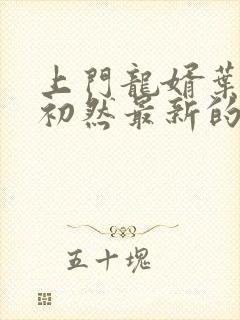 上門龍婿葉
初然最新的
五十塊